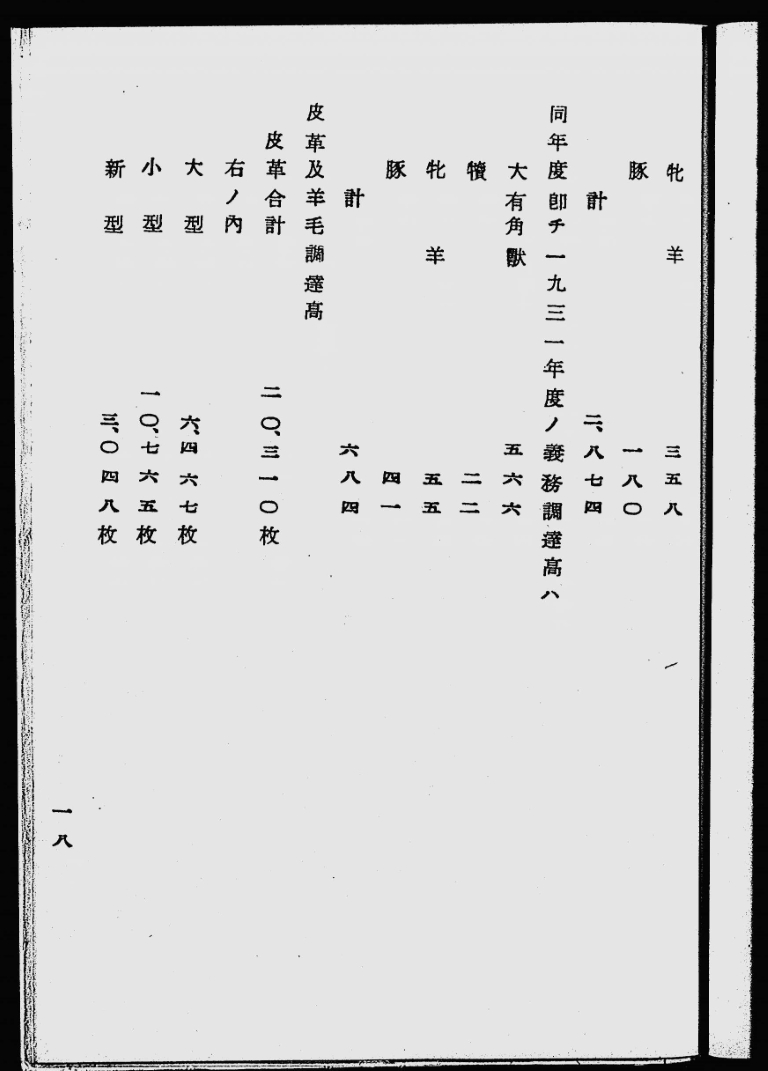 牝羊 三五八
豚 一八〇
計 二、八七四
同年度卽チ一九三一年度ノ義務調達高ハ
大有角獸 五六六
犢 二二
牝羊 五五
豚 四一
計 六八四
皮革及羊毛調達高
皮革合計 二〇、三一〇枚
右ノ內
大型 六、四六七枚
小型 一〇、七六五枚
新型 三、〇四八枚
一八